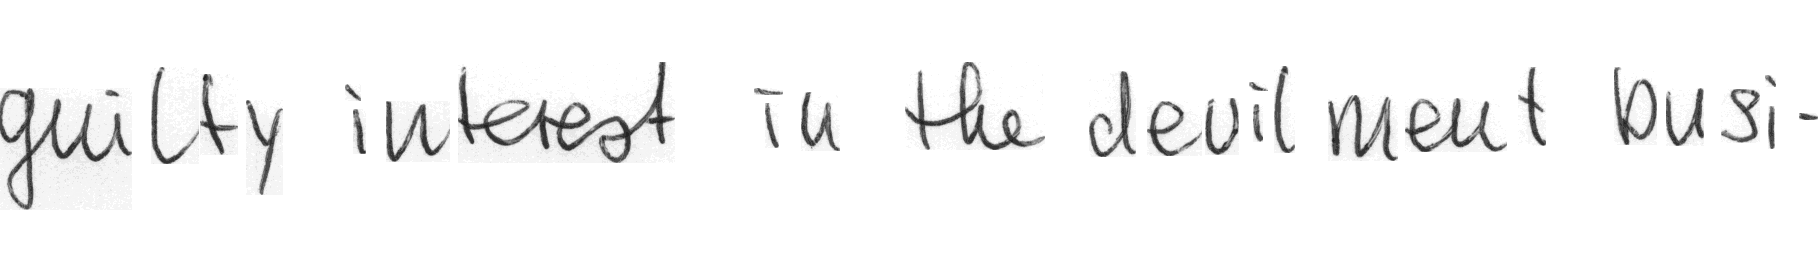 guilty interest in the devilment busi-